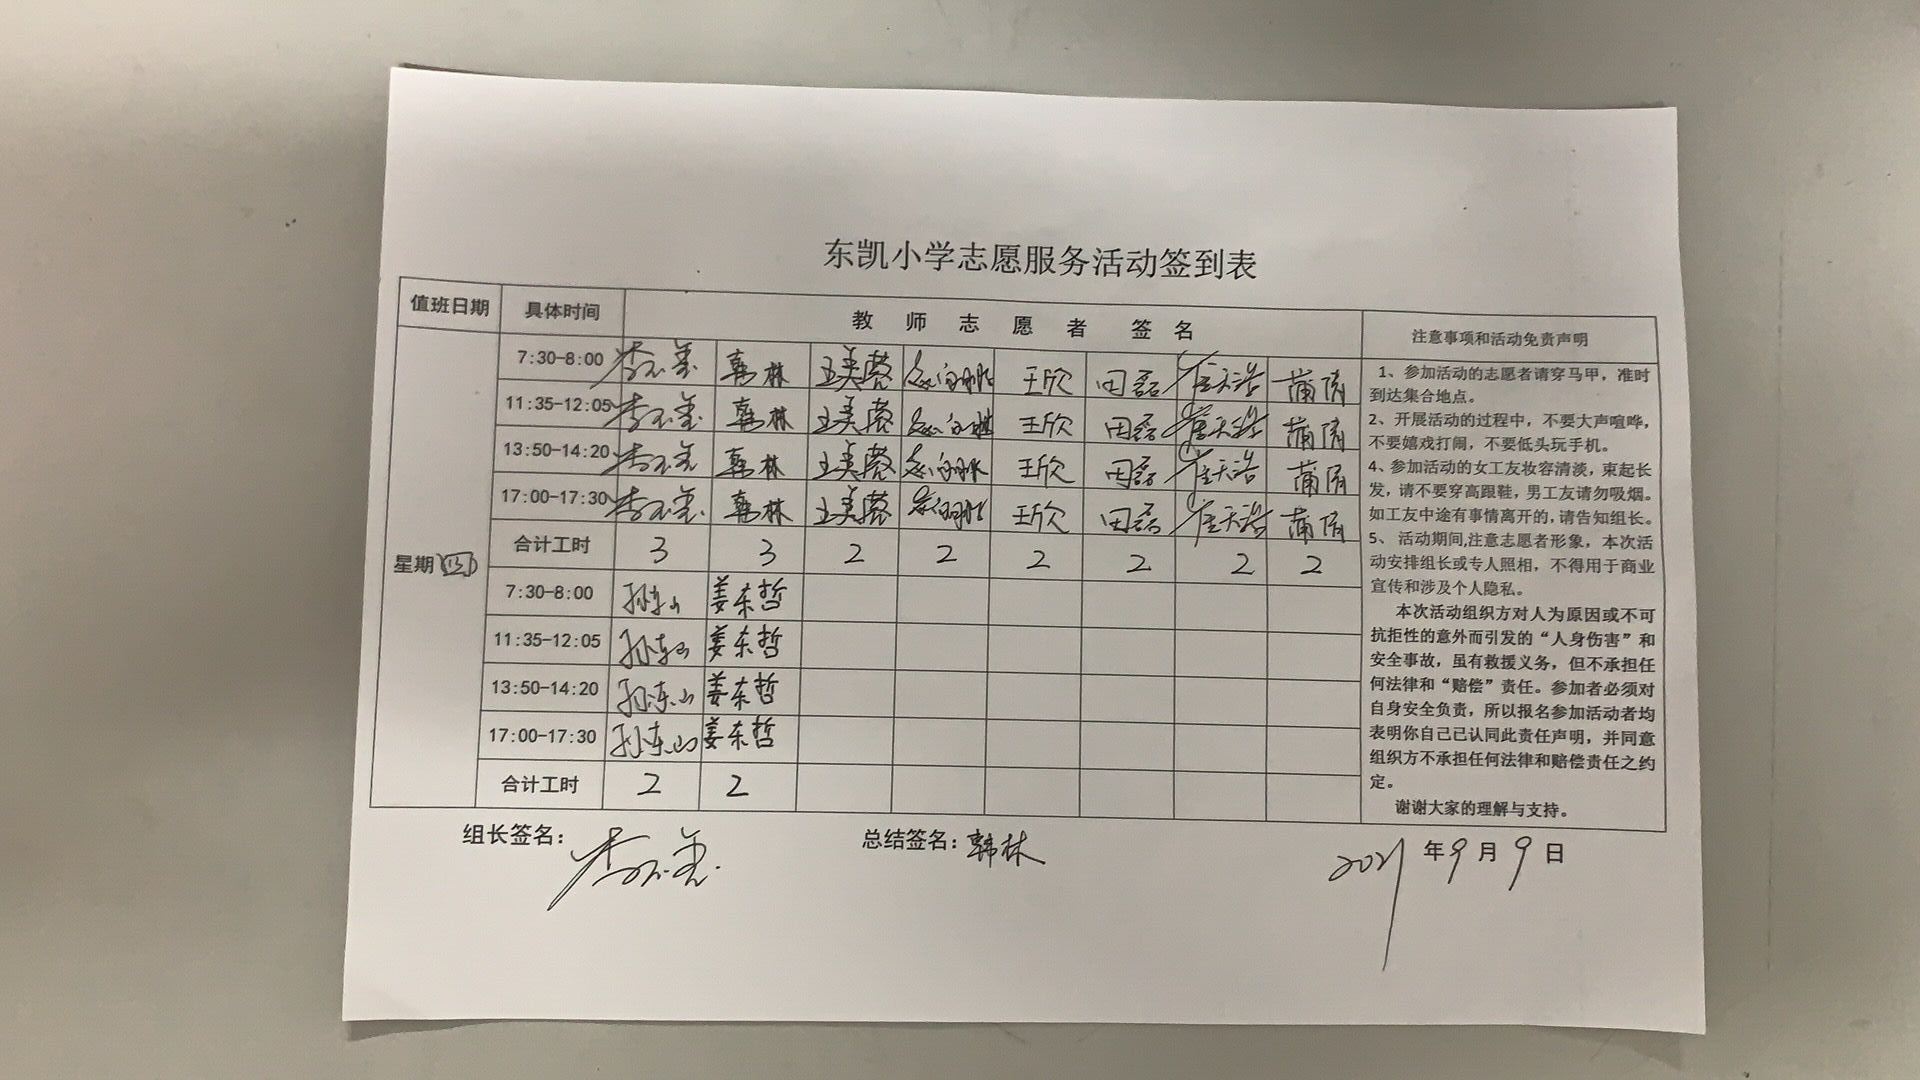 东凯小学志愿服务活动签到表
值班日期 具体时间 教师志愿者签名 注意事项和活动免责声明
7:30-8:00 韩林 王美蓉 王欣 田磊 崔天浩 蒲倩
11:35-12:05 韩林 王美蓉 王欣 田磊 崔天浩 蒲倩
13:50-14:20 韩林 王美蓉 王欣 田磊 崔天浩 蒲倩
17:00-17:30 韩林 王美蓉 王欣 田磊 崔天浩 蒲倩
合计工时 3 3 2 2 2 2 2 2
星期(四)
7:30-8:00 孙东山 姜东哲
11:35-12:05 孙东山 姜东哲
13:50-14:20 孙东山 姜东哲
17:00-17:30 孙东山 姜东哲
合计工时 2 2
1、参加活动的志愿者请穿马甲，准时
到达集合地点。
2、开展活动的过程中，不要大声喧哗，
不要嬉戏打闹，不要低头玩手机。
4、参加活动的女工友妆容清淡，束起长
发，请不要穿高跟鞋，男工友请勿吸烟。
如工友中途有事情离开的,请告知组长。
5、活动期间,注意志愿者形象，本次活
动安排组长或专人照相，不得用于商业
宣传和涉及个人隐私。
本次活动组织方对人为原因或不可
抗拒性的意外而引发的“人身伤害”和
安全事故，虽有救援义务，但不承担任
何法律和“赔偿”责任。参加者必须对
自身安全负责，所以报名参加活动者均
表明你自己已认同此责任声明，并同意
组织方不承担任何法律和赔偿责任之约
定。
谢谢大家的理解与支持。
组长签名： 总结签名：韩林 2021年9月9日